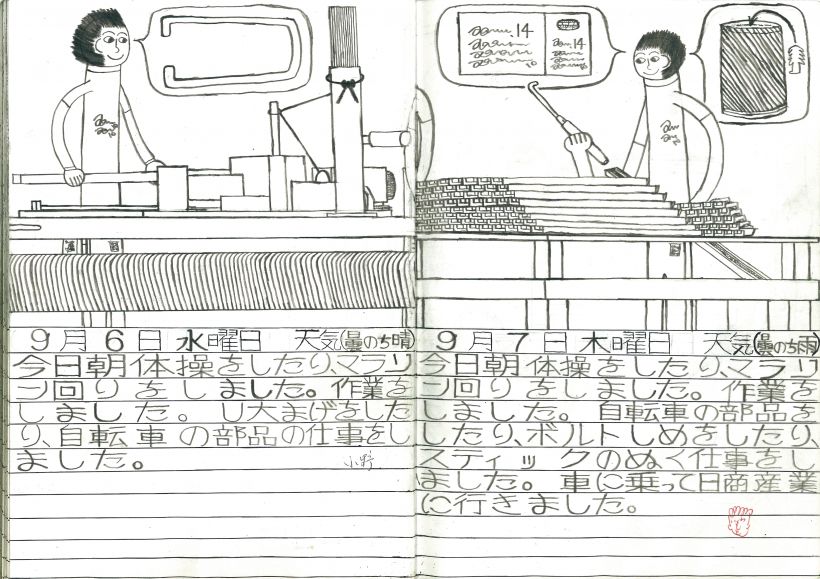 .14
.14
9月6日 水曜日 天気(曇のち晴)
今日朝体操をしたり、マラソ
ン回りをしました。作業を
しました。U大まげをした
り、自転車の部品の仕事をし
ました。
小野
9月7日 木曜日 天気(曇のち雨)
今日朝体操をしたり、マラソ
ン回りをしました。作業を
しました。自転車の部品を
したり、ボルトしめをしたり、
スティックのぬく仕事をし
ました。車に乗って日商産業
に行きました。